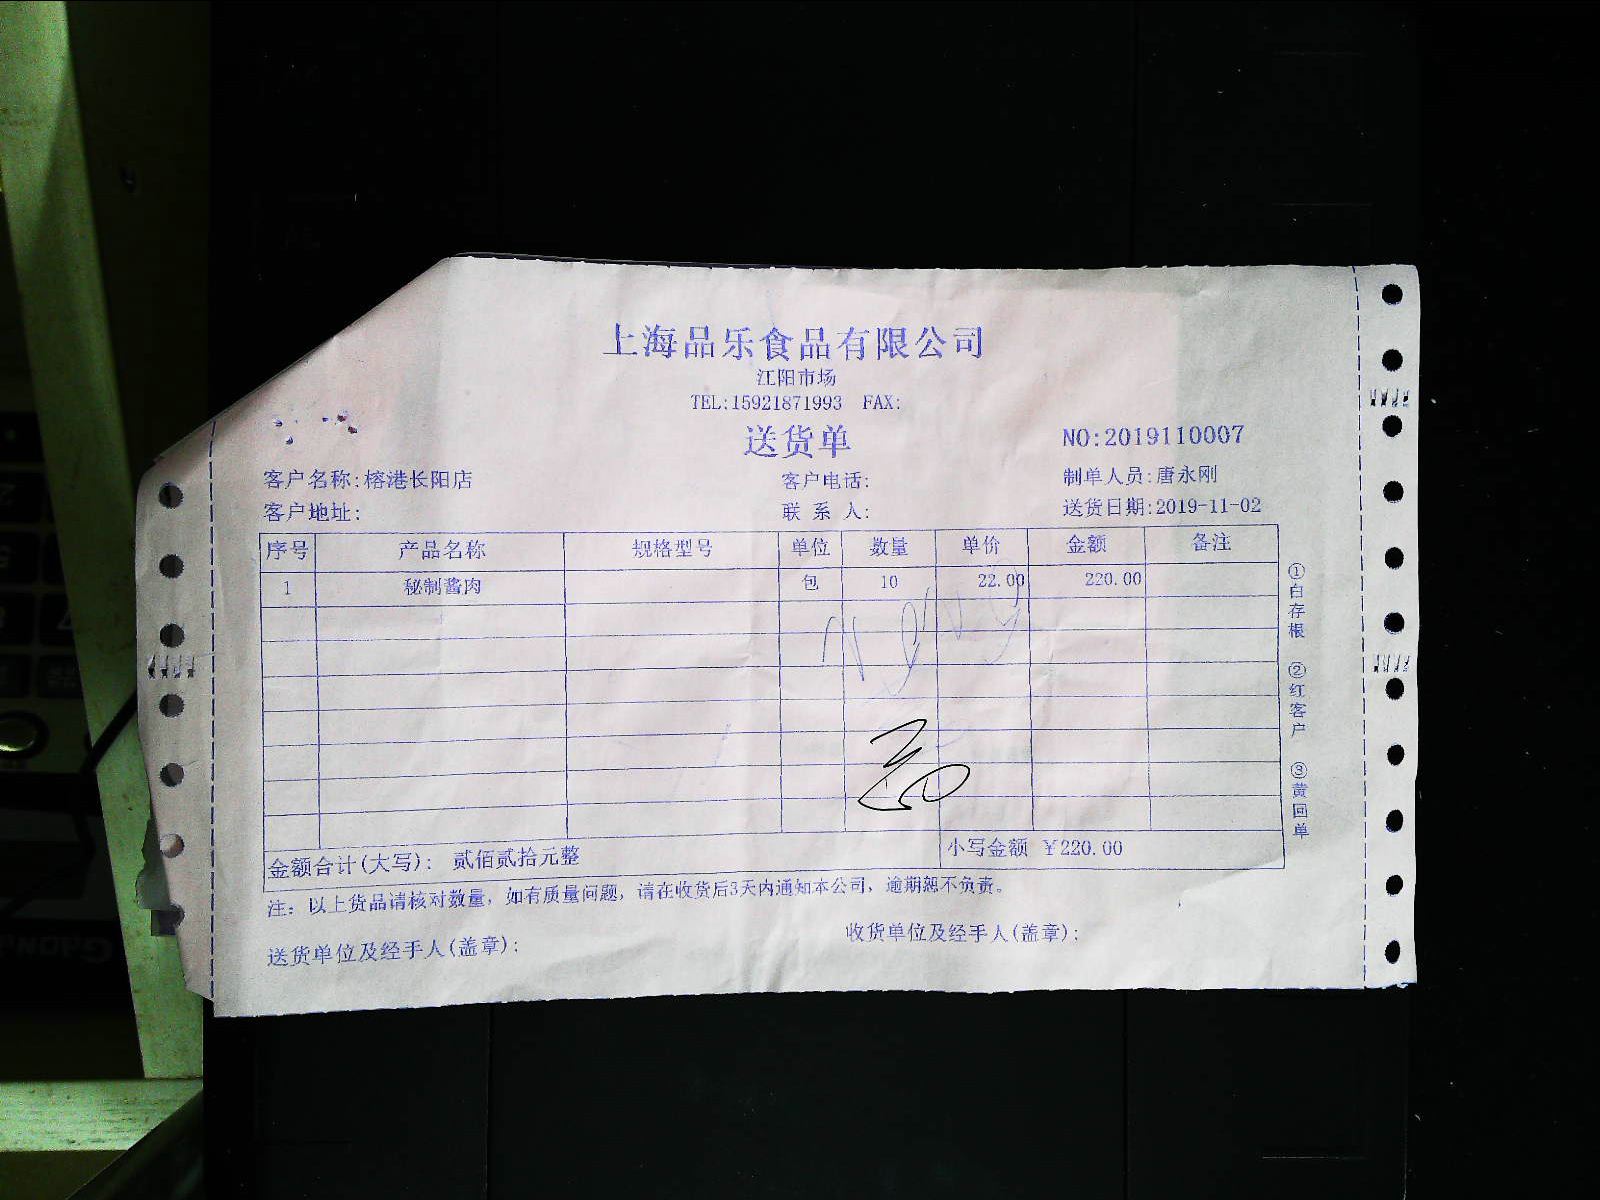 上海品乐食品有限公司
江阳市场
TEL:15921871993 FAX:
送货单 NO:2019110007
客户名称:榕港长阳店 客户电话: 制单人员:唐永刚
客户地址: 联 系 人: 送货日期:2019-11-02
序号 产品名称 规格型号 单位 数量 单价 金额 备注
1 秘制酱肉 包 10 22.00 220.00
金额合计(大写): 贰佰贰拾元整 小写金额 ¥220.00
注: 以上货品请核对数量, 如有质量问题, 请在收货后3天内通知本公司, 逾期恕不负责。
送货单位及经手人(盖章): 收货单位及经手人(盖章):
①白存根 ②红客户 ③黄回单